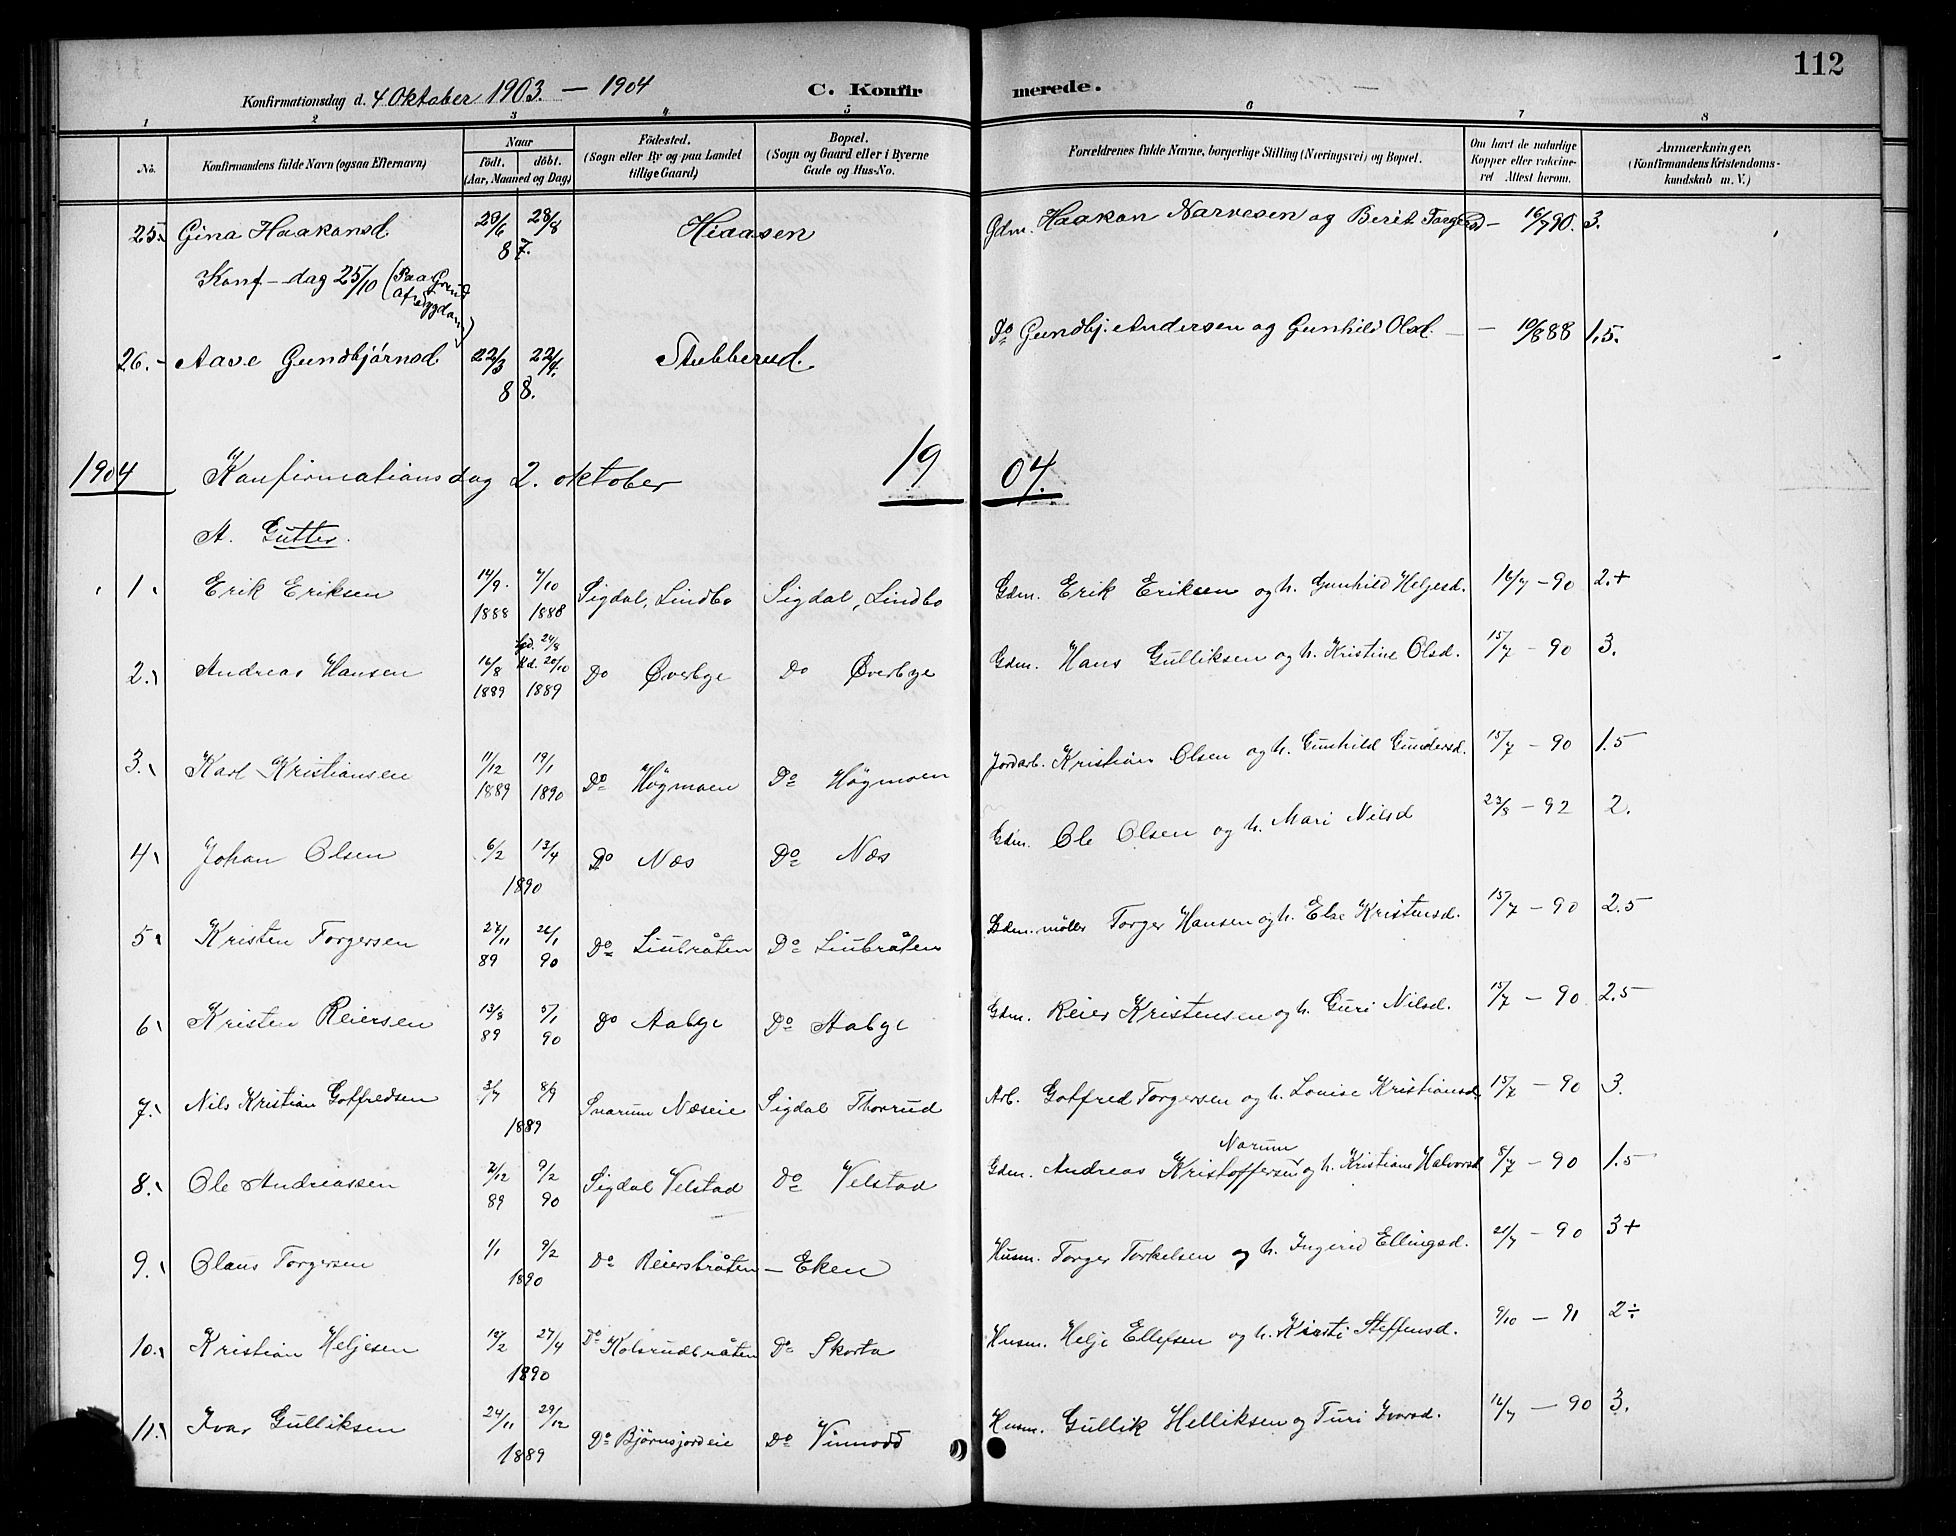 112
Konfirmationsdag d. 4 Oktober 1903. — 1904 C. Konfirmerede.
1 2 3 4 5 6 7 8
No. Konfirmandens fulde Navn (ogsaa Efternavn) Naar födt. döbt. (Aar, Maaned og Dag) Födested. (Sogn eller By og paa Landet tillige Gaard) Bopæl. (Sogn og Gaard eller i Byerne Gade og Hus-No. Forældrenes fulde Navne, borgerlige Stilling (Næringsvei) og Bopæl. Om havt de naturlige Kopper eller vakcineret Attest herom. Anmærkninger. (Konfirmandens Kristendomskundskab m. V.)
25. Gina Haakonsd 28/8 87. Hiaasen Gdm. Haakon Narvesen og Berit Torgersd — 16/7 90. 3.
Konf-dag 25/10 (Paa Grund af Sygdom)
26. Aase Gundbjörnsd 22/3 22/4. 88. Stubberud. Do Gundbj. Andersen og Gunhild Olsd. — 10/8 88 1.5.
1904 Konfirmationsdag 2. oktober 1904.
A. Gutter.
1. Erik Eriksen 14/9. 1888 7/10 1888 Sigdal, Lindbo Sigdal, Lindbo Gdm. Erik Eriksen og h. Gunhild Helgesd. 16/7 — 90 2.+
2. Andreas Hansen 16/8 1889 Hjd. 24/8 Kd. 20/10 1889 Do Øverbye Do Øverbye Gdm. Hans Gulliksen og h. Kristine Olsd. 15/7 — 90 3.
3. Karl Kristiansen 11/12 1889 19/1 1890 Do Högmoen Do Högmoen Jordarb. Kristian Olsen og h. Gunhild Gundersd. 15/7 — 90 1.5
4. Johan Olsen 6/2 13/4 1890 Do Næs Do Næs Gdm. Ole Olsen og h. Mari Nilsd 23/8 — 92 2.
5. Kristen Torgersen 27/11 89 26/1 90 Do Liubråten Do Liubråten Gdm. möller Torger Hansen og h. Else Kristensd. 15/7 — 90 2.5
6. Kristen Reiersen 13/8 89 5/1 90 Do Aabye Do Aabye Gdm. Reier Kristensen og h. Guri Nilsd. 15/7 — 90. 2.5
7. Nils Kristian Gotfredsen 3/7 8/9 1889 Snarum Næseie Sigdal Thorrud Arb. Gotfred Torgersen og h. Louise Kristiansd. 15/7 — 90 3.
8. Ole Andreassen 2/12 89 9/2 90 Sigdal Velstad Do Velstad Gdm. Andreas Kristoffersen Narum og h. Kristiane Halvorsd 8/7 — 90 1.5
9. Olaus Torgersen 1/1 9/2 1890 Do Reiersbråten — Eken Husm. Torger Torkelsen og h. Ingerid Ellingsd. 21/7 — 90 3+
10. Kristian Heljesen 12/2 27/4 1890 Do Kolsrudbråten Do Skorta Husm. Helje Ellefsen og h. Kirsti Steffensd. 9/10 — 91 2÷
11. Ivar Gulliksen 24/11 29/12 1889 Do Björnsjordeie Do Vinnodd Husm. Gullik Helliksen og Turi Ivarsd. 16/7 — 90 3.